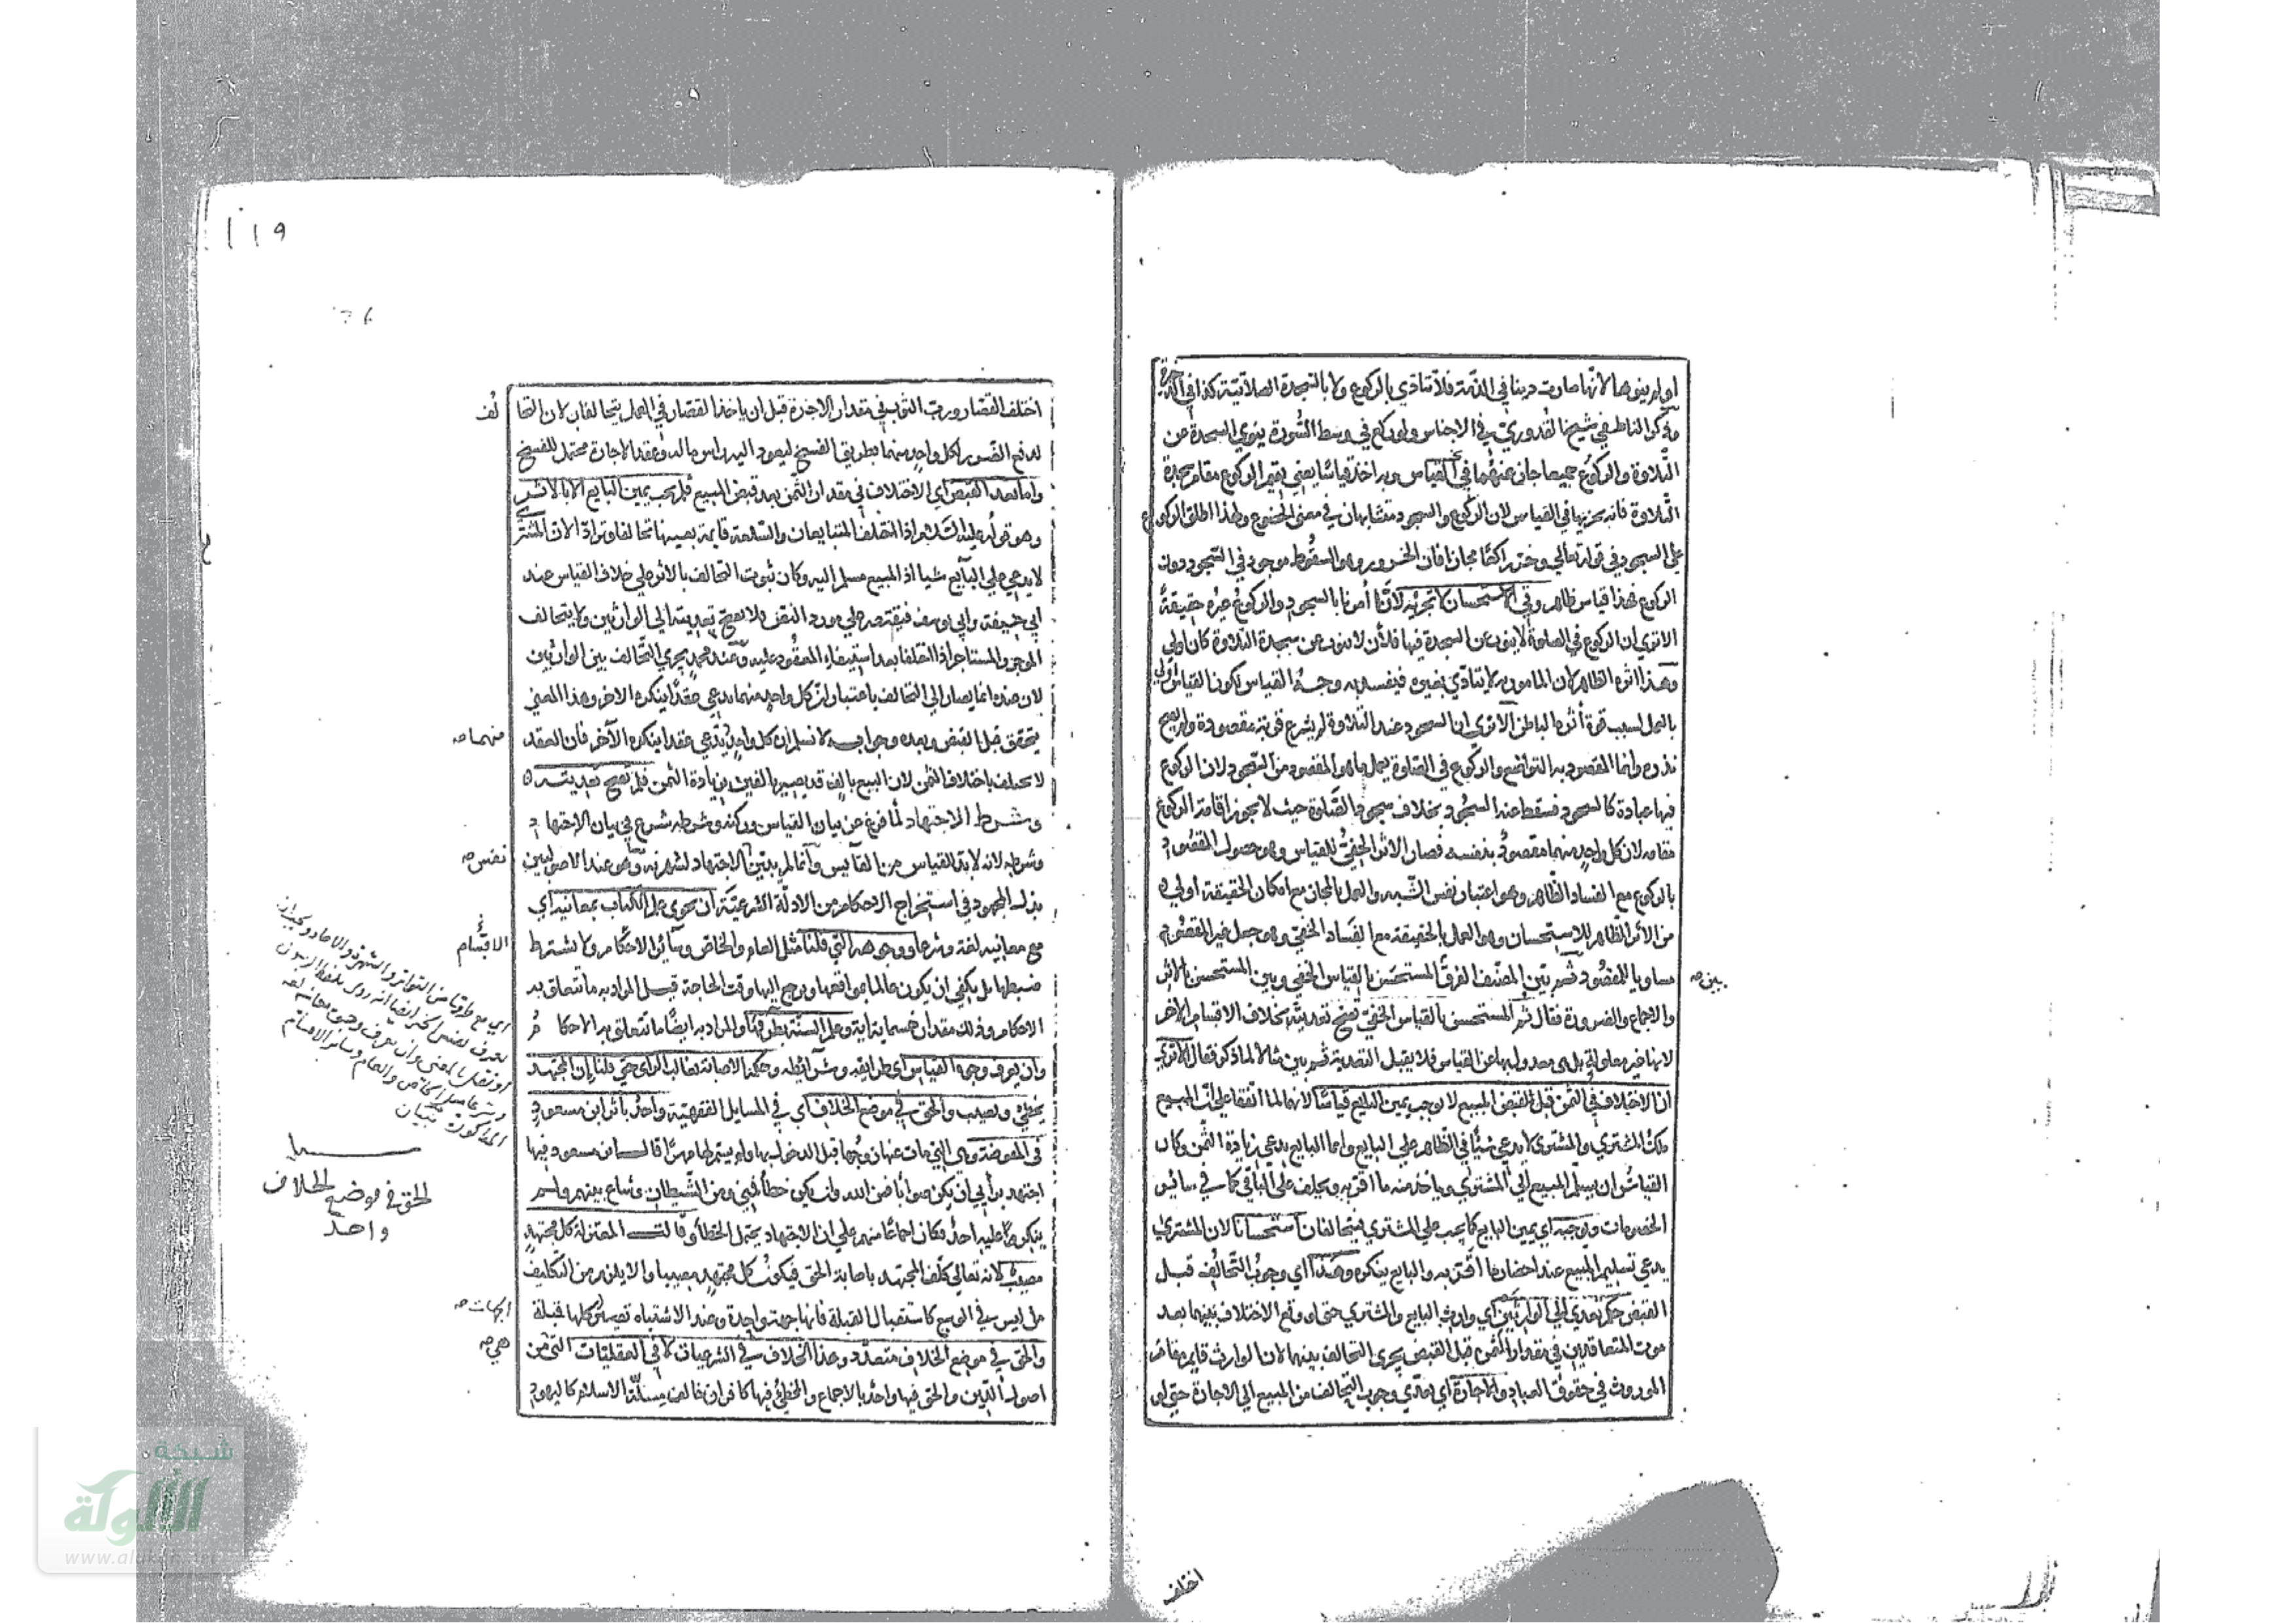 او لم ينوها لانها صارت دينا في الذمة فلا تتادى بالركوع ولا بالسجدة الصلاتية كذا في
وذكر الناطفي شيخنا القدوري في الاجناس ولو ركع في وسط السورة ينوي السجدة عن
التلاوة والركوع جميعا جاز عنهما في القياس وبه اخذ قياسا يعني يقيم الركوع مقام سجدة
التلاوة فانه يجزيها في القياس لان الركوع والسجود متشابهان في معنى الخضوع ولهذا اطلق الركوع
على السجود في قوله تعالى وخر راكعا مجازا فان الخرور وهو السقوط موجود في السجود دون
الركوع فهذا قياس ظاهر وفي الاستحسان لا تجزيه لانا أمرنا بالسجود والركوع غيره حقيقة
الا ترى ان الركوع في الصلوة لا ينوب عن السجدة فيها فلأن لا ينوب عن سجدة التلاوة كان اولى
وهذا اثره الظاهر لان المامور به لا يتادى بغيره فيفسد به وجه القياس لكن القياس اولى
بالعمل بسبب قوة أثره الباطن الا ترى ان السجود عند التلاوة لم يشرع قربة مقصودة ولم يصح
نذره وانما المقصود به التواضع والركوع في الصلوة يعمل ما هو المقصود من السجود لان الركوع
فيها عبادة كالسجود فسقط عنه السجود بخلاف سجود الصلوة حيث لا يجوز اقامة الركوع
مقامه لان كل واحد منهما مقصود بنفسه فصار الاثر الخفي للقياس وهو حصول المقصود
بالركوع مع الفساد الظاهر وهو اعتبار نفس الشبه والعمل بالمجاز مع امكان الحقيقة أولى
من الاثر الظاهر للاستحسان وهو العمل بالحقيقة مع الفساد الخفي وهو جعل غير المقصود
مساويا للمقصود ثم بين المصنف الفرق المستحسن بالقياس الخفي وبين المستحسن بالاثر
بين صح
والاجماع والضرورة فقال ثم المستحسن بالقياس الخفي تصح تعديته بخلاف الاقسام الأخر
لانها غير معلولة بل هي معدول بها عن القياس فلا يقبل التعدية ثم بين مثالا لما ذكر فقال الا ترى
ان الاختلاف في الثمن قبل القبض المبيع لا يوجب يمين البايع قياسا لانهما لما اتفقا على ان المبيع
ملك المشتري والمشتري لا يدعي شيئا في الظاهر على البايع وانما البايع يدعي زيادة الثمن وكان
القياس ان يسلم المبيع الى المشتري وياخذ منه ما اقر به ويحلف على الباقي كما في سائر
الخصومات ويوجبه اي يمين البايع كما يجب على المشتري فيتحالفان استحسانا لان المشتري
يدعي تسليم المبيع عند احضار ما اقر به والبايع ينكره وهذا اي وجوب التحالف قبل
القبض حكم تعدى الى الوارثين اي وارث البايع والمشتري حتى لو وقع الاختلاف بينهما بعد
موت المتعاقدين في مقدار الثمن قبل القبض يجرى التحالف بينهما لان الوارث قايم مقام
الموروث في حقوق العباد والاجارة اي تعدي وجوب التحالف من المبيع الى الاجارة حتى لو
اختلف
١١٩
اختلف القصار ورب الثوب في مقدار الاجرة قبل ان ياخذ القصار في العمل يتحالفان لان التحا
لف
لدفع الضرر لكل واحد منهما بطريق الفسخ ليعود اليه راس ماله وعقد الاجارة محتمل للفسخ
واما بعد القبض اي الاختلاف في مقدار الثمن بعد قبض المبيع فلم يجب يمين البايع الا بالاثر
وهو قوله عليه السلام اذا اختلف المتبايعان والسلعة قايمة بعينها تحالفا وترادا لان المشتري
لا يدعي على البايع شيا اذ المبيع مسلم اليه وكان ثبوت التحالف بالاثر على خلاف القياس عند
ابي حنيفة وابي يوسف فيقتصر على مورد النص فلا يصح تعديته الى الوارثين ولا يتحالف
الموجر والمستاجر اذا اختلفا بعد استيفاء المعقود عليه وعند محمد يجري التحالف بين الوارثين
لان عنده انما يصار الى التحالف باعتبار ان كل واحد منهما يدعي عقدا ينكره الاخر وهذا المعنى
يتحقق قبل القبض وبعده وجوابه لا نسلم ان كل واحد يدعي عقدا ينكره الآخر فان العقد
منهما صح
لا يختلف باختلاف الثمن لان البيع بالف قد يصير بالفين بزيادة الثمن فلم تصح تعديته
وشرط الاجتهاد لما فرغ عن بيان القياس وركنه وشرطه شرع في بيان الاجتهاد
وشرطه لانه لا بد للقياس من القايس وانما لم يبين الاجتهاد لشهرته وهو عند الاصوليين
نفس صح
بذل المجهود في استخراج الاحكام من الادلة الشرعية ان يحوى علم الكتاب بمعانيه اي
مع معانيه لغة وشرعا ووجوهه التي قلنا مثل العام والخاص وسائر الاحكام ولا يشترط
الاقسام
ضبطها بل يكفي ان يكون عالما بمواقعها ويرجع اليها وقت الحاجة قيل المراد به ما تتعلق به
الاحكام وذلك مقدار خمسماية اية وعلم السنة بطرقها والمراد به ايضا ما تتعلق به الاحكام
وان يعرف وجوه القياس اي طرايقه وشرائطه وحكمه الاصابة بغالب الراى حتى قلنا ان المجتهد
يخطئ ويصيب والحق في موضع الخلاف اي في المسايل الفقهية واحد باثر ابن مسعود
في المفوضة وهي التي مات عنها زوجها قبل الدخول بها ولم يسم لها مهرا قال ابن مسعود فيها
اجتهد برأيي ان يكن صوابا فمن الله وان يكن خطأ فمني ومن الشيطان وشاع بينهم ولم
ينكر عليه احد فكان اجماعا منهم على ان الاجتهاد يحتمل الخطأ وقالت المعتزلة كل مجتهد
مصيب لانه تعالى كلف المجتهد باصابة الحق فيكون كل مجتهد مصيبا والا يلزم من التكليف
ما ليس في الوسع كاستقبال القبلة فانها جهة واحدة وعند الاشتباه تصير كلها قبلة
الجهات صح
والحق في موضع الخلاف متعدد وهذا الخلاف في الشرعيات لا في العقليات التي من
هي صح
اصول الدين والحق فيها واحد بالاجماع والمخطئ فيها كافر ان خالف ملة الاسلام كاليهود
الحق في موضع الخلاف
واحد
شبكة
الألوكة
www.alukah.net